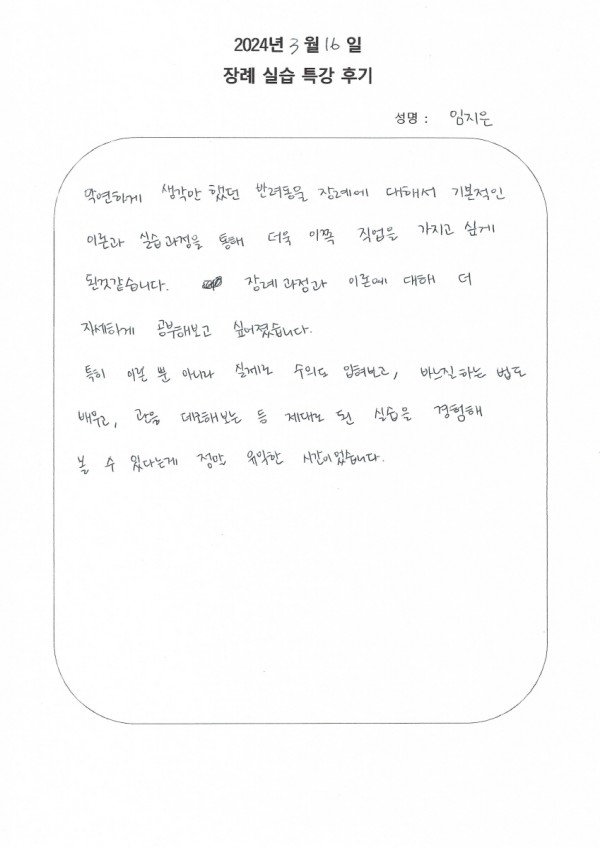 2024년 3월 16일
장례 실습 특강 후기
성명 : 임지은
막연하게 생각만 했던 반려동물 장례에 대해서 기본적인
이론과 실습과정을 통해 더욱 이쪽 직업을 가지고 싶게
된것같습니다. 장례과정과 이론에 대해 더
자세하게 공부해보고 싶어졌습니다.
특히 이론 뿐 아니라 실제로 수의도 입혀보고, 바느질하는 법도
배우고, 관을 데모해보는 등 제대로 된 실습을 경험해
볼 수 있다는게 정말 유익한 시간이었습니다.